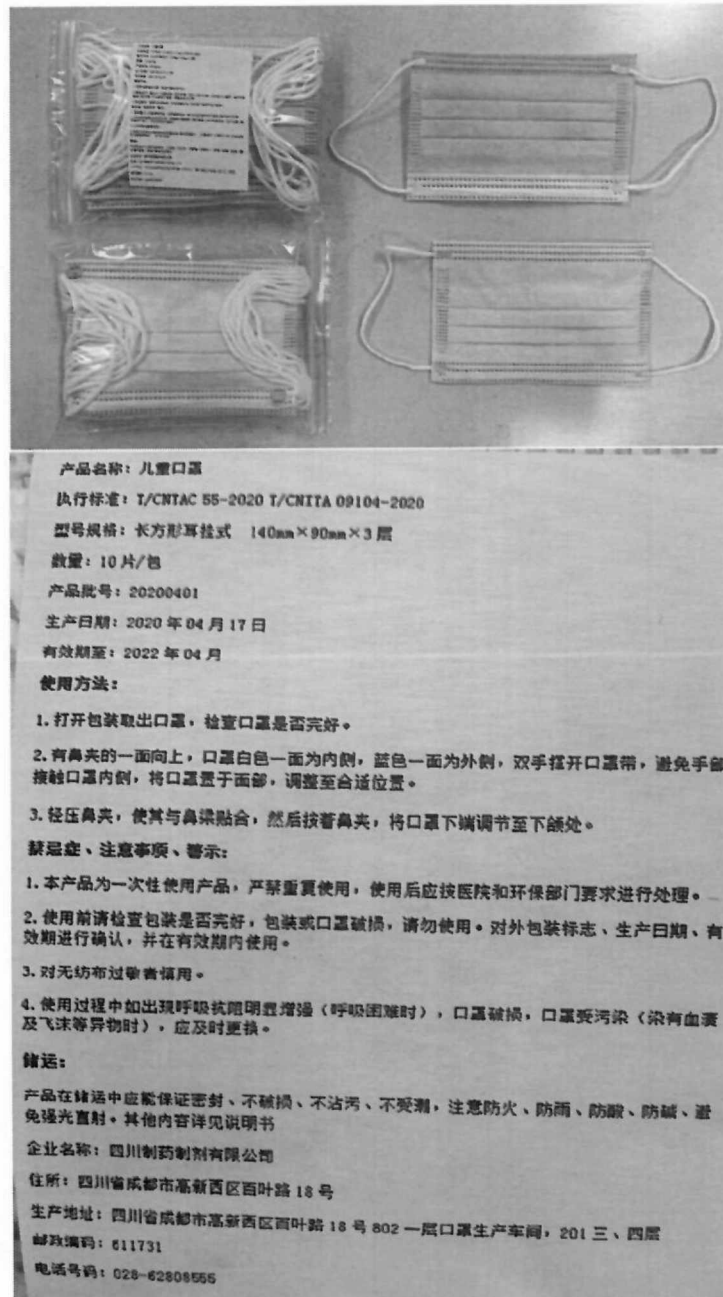 产品名称：儿童口罩
执行标准：T/CNTAC 55-2020 T/CNITA 09104-2020
型号规格：长方形耳挂式 140mm×90mm×3层
数量：10片/包
产品批号：20200401
生产日期：2020年04月17日
有效期至：2022年04月
使用方法：
1.打开包装取出口罩，检查口罩是否完好。
2.有鼻夹的一面向上，口罩白色一面为内侧，蓝色一面为外侧，双手撑开口罩带，避免手部
接触口罩内侧，将口罩置于面部，调整至合适位置。
3.轻压鼻夹，使其与鼻梁贴合，然后按着鼻夹，将口罩下端调节至下颌处。
禁忌症、注意事项、警示：
1.本产品为一次性使用产品，严禁重复使用，使用后应按医院和环保部门要求进行处理。
2.使用前请检查包装是否完好，包装或口罩破损，请勿使用。对外包装标志、生产日期、有
效期进行确认，并在有效期内使用。
3.对无纺布过敏者慎用。
4.使用过程中如出现呼吸抗阻明显增强（呼吸困难时），口罩破损，口罩受污染（染有血渍
及飞沫等异物时），应及时更换。
储运：
产品在储运中应能保证密封、不破损、不沾污、不受潮，注意防火、防雨、防酸、防碱、避
免强光直射。其他内容详见说明书
企业名称：四川制药制剂有限公司
住所：四川省成都市高新西区百叶路18号
生产地址：四川省成都市高新西区百叶路18号802一层口罩生产车间，201三、四层
邮政编码：611731
电话号码：028-62808555